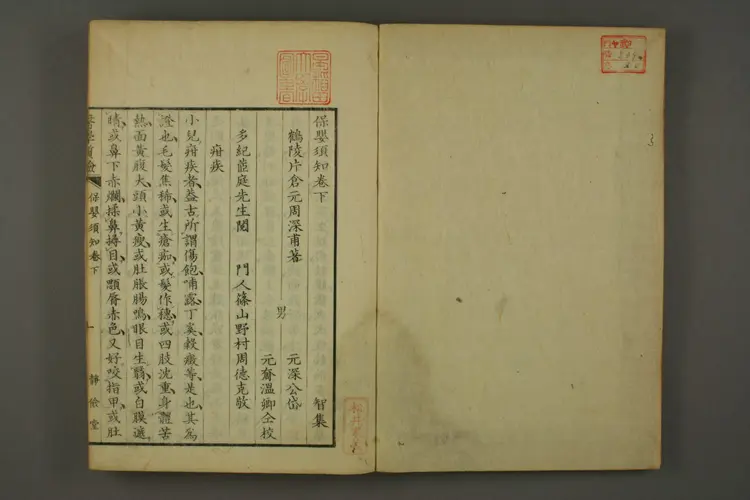 保嬰須知卷下
智集
鶴陵片倉元周深甫著
男
元深公岱
元奮溫卿仝校
多紀藍庭先生閱
門人篠山野村周德克敬
疳疾
小兒疳疾者蓋古所謂傷飽哺露丁奚穀癥等是也其為
證也毛髮焦稀或生瘡痂或髮作穗或四肢沈重身體苦
熱面黃腹大頭小黃瘦或肚脹腸鳴眼目生翳或白膜遮
睛或鼻下赤爛揉鼻揩目或顋脣赤色又好咬指甲或肚
保嬰須知卷下
一
靜儉堂